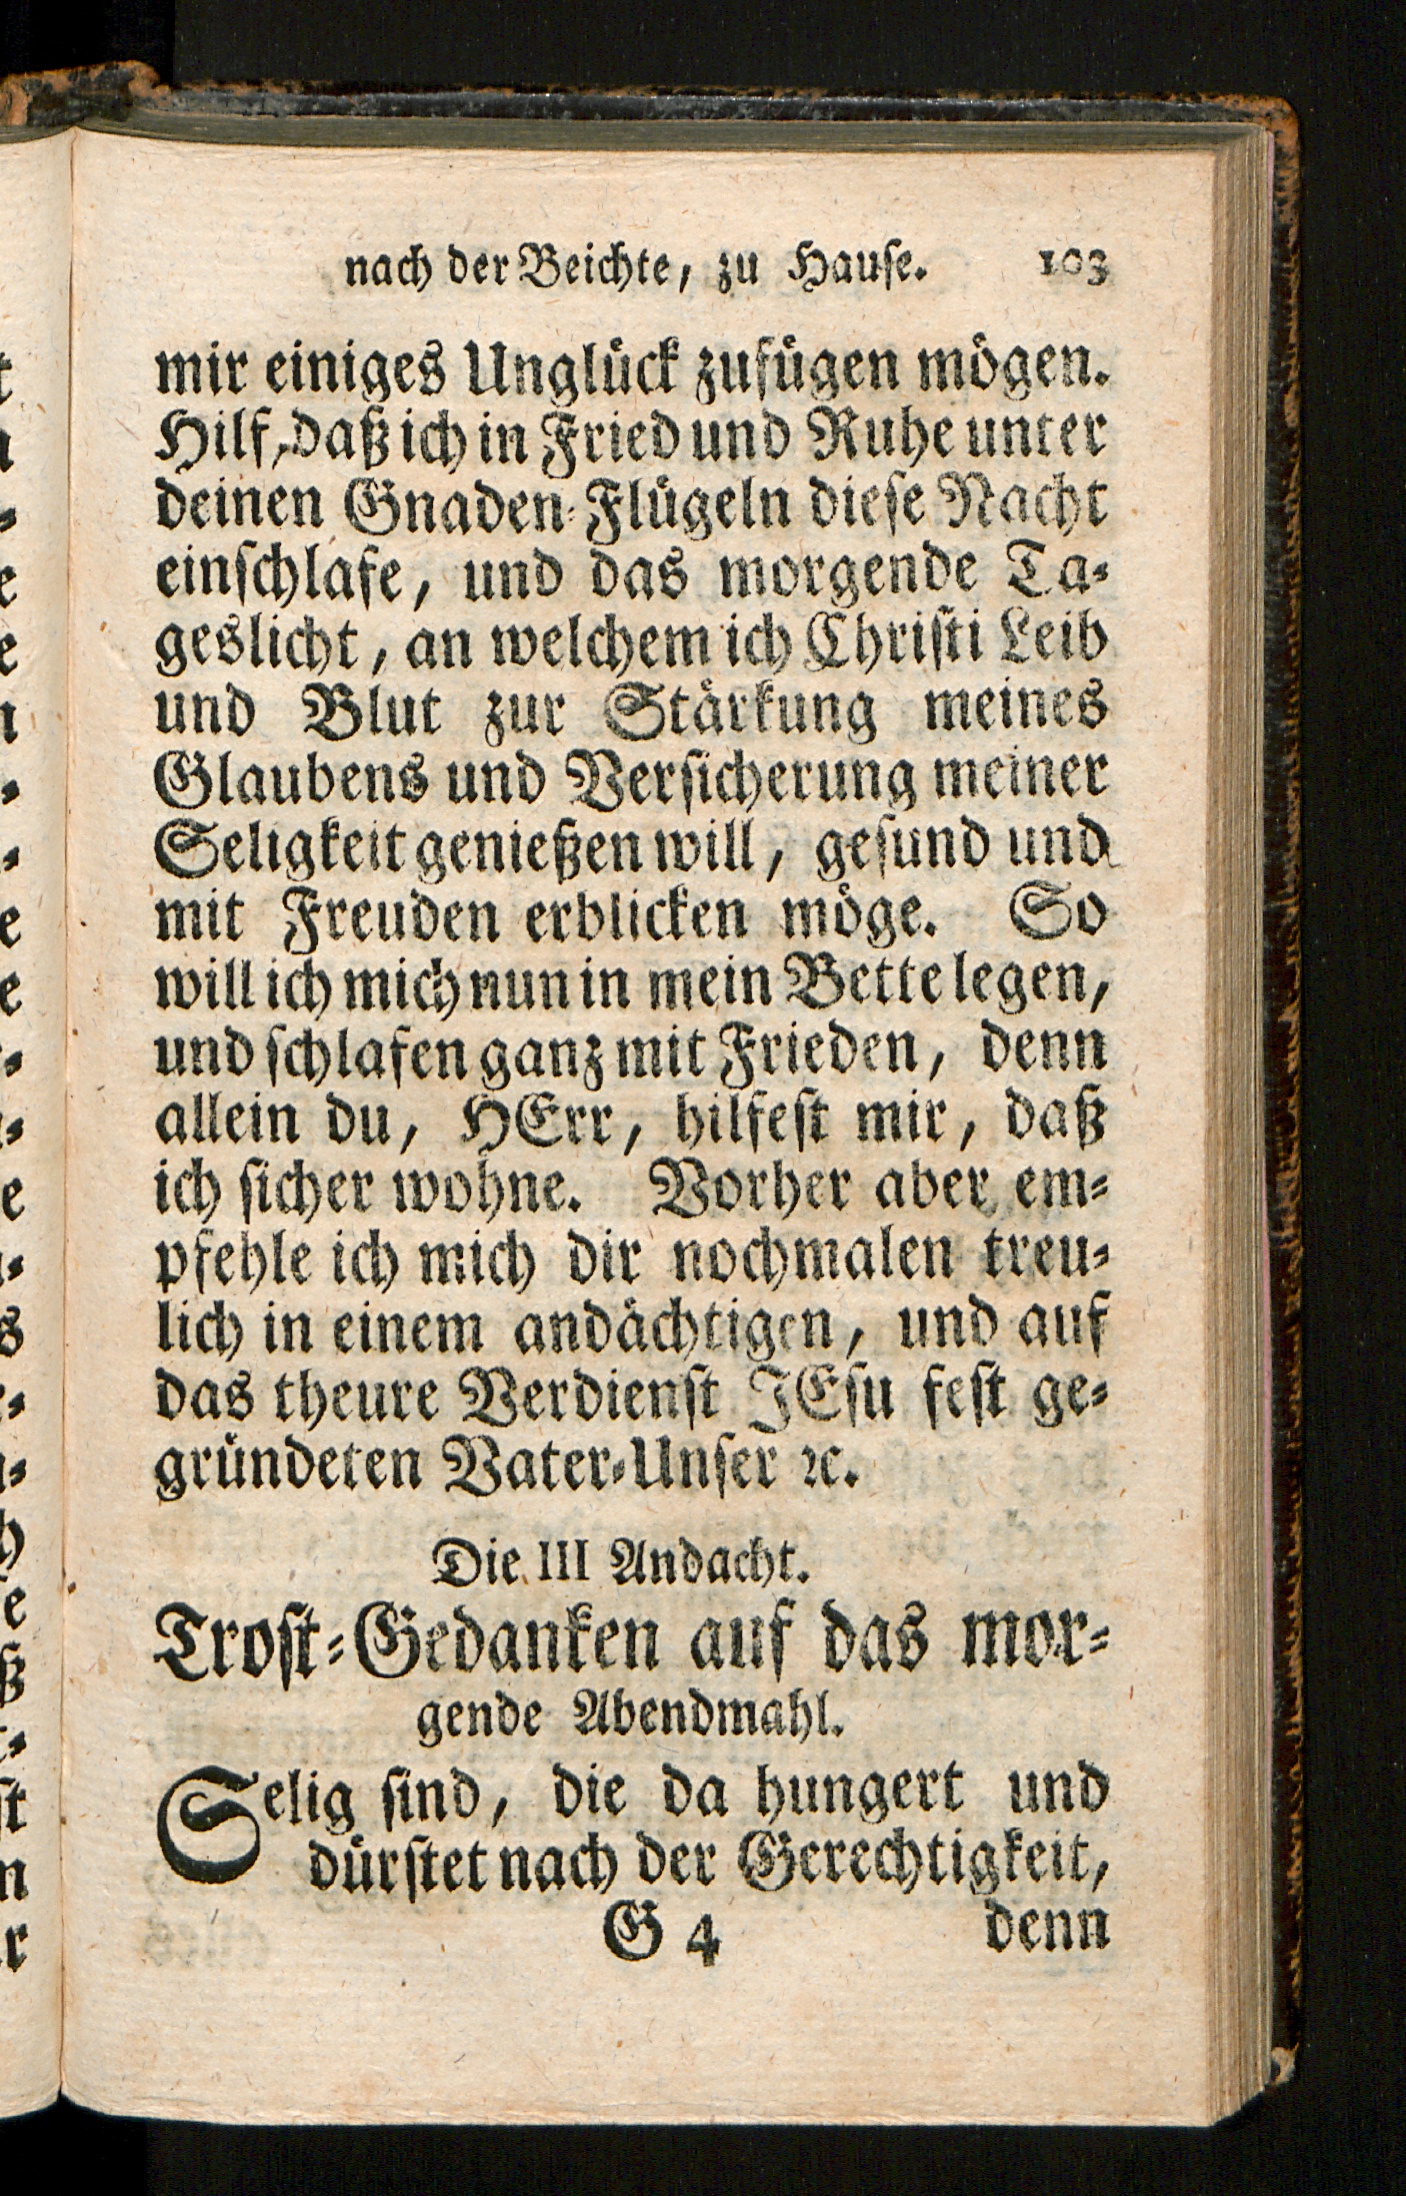 nach der Beichte, zu Hause. 103
mir einiges Unglück zufügen mögen.
Hilf, daß ich in Fried und Ruhe unter
deinen Gnaden-Flügeln diese Nacht
einschlafe, und das morgende Ta-
geslicht, an welchem ich Christi Leib
und Blut zur Stärkung meines
Glaubens und Versicherung meiner
Seligkeit genießen will, gesund und
mit Freuden erblicken möge. So
will ich mich nun in mein Bette legen,
und schlafen ganz mit Frieden, denn
allein du, HErr, hilfest mir, daß
ich sicher wohne. Vorher aber em-
pfehle ich mich dir nochmalen treu-
lich in einem andächtigen, und auf
das theure Verdienst JEsu fest ge-
gründeten Vater-Unser ꝛc.
Die III Andacht.
Trost-Gedanken auf das mor-
gende Abendmahl.
Selig sind, die da hungert und
dürstet nach der Gerechtigkeit,
G 4 denn